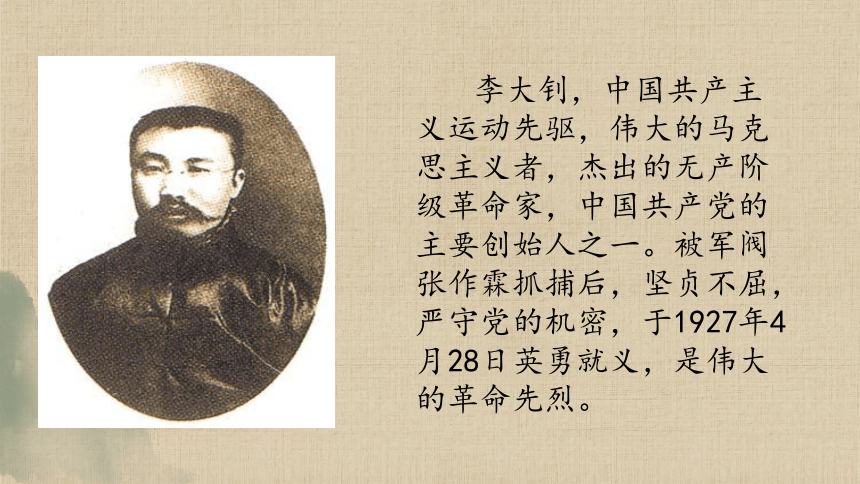 李大钊，中国共产主
义运动先驱，伟大的马克
思主义者，杰出的无产阶
级革命家，中国共产党的
主要创始人之一。被军阀
张作霖抓捕后，坚贞不屈，
严守党的机密，于1927年4
月28日英勇就义，是伟大
的革命先烈。